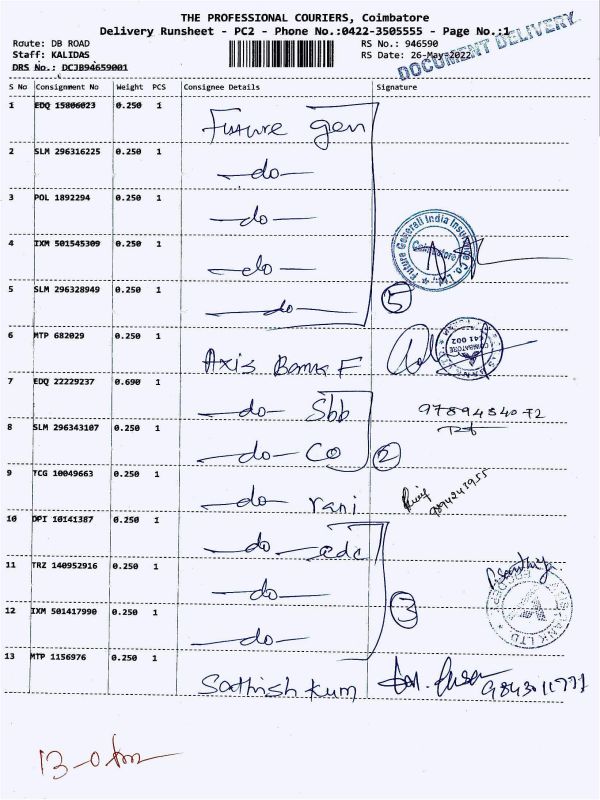 THE PROFESSIONAL COURIERS, Coimbatore
Delivery Runsheet - PC2 - Phone No.:0422-3505555 - Page No.:1
Route: DB ROAD
RS No.: 946590
Staff: KALIDAS
RS Date: 26-May-2022
DRS No.: DCJB94659001
DOCUMENT DELIVERY.
S No Consignment No Weight PCS Consignee Details Signature
1 EDQ 15806023 0.250 1 Future gen
2 SLM 296316225 0.250 1 —do—
3 POL 1892294 0.250 1 —do—
4 IXM 501545309 0.250 1 —do—
Future Generali India Insurance Co. Ltd.
Coimbatore
5 SLM 296328949 0.250 1 —do— 5
6 MTP 682029 0.250 1 Axis Bank F
COIMBATORE
641 002
7 EDQ 22229237 0.690 1 —do— Sbb
8 SLM 296343107 0.250 1 —do— CO 2
9 TCG 10049663 0.250 1 —do— rani
10 DPI 10141387 0.250 1 —do— edc
11 TRZ 140952916 0.250 1 —do—
12 IXM 501417990 0.250 1 —do— 3
13 MTP 1156976 0.250 1 Sathish Kum